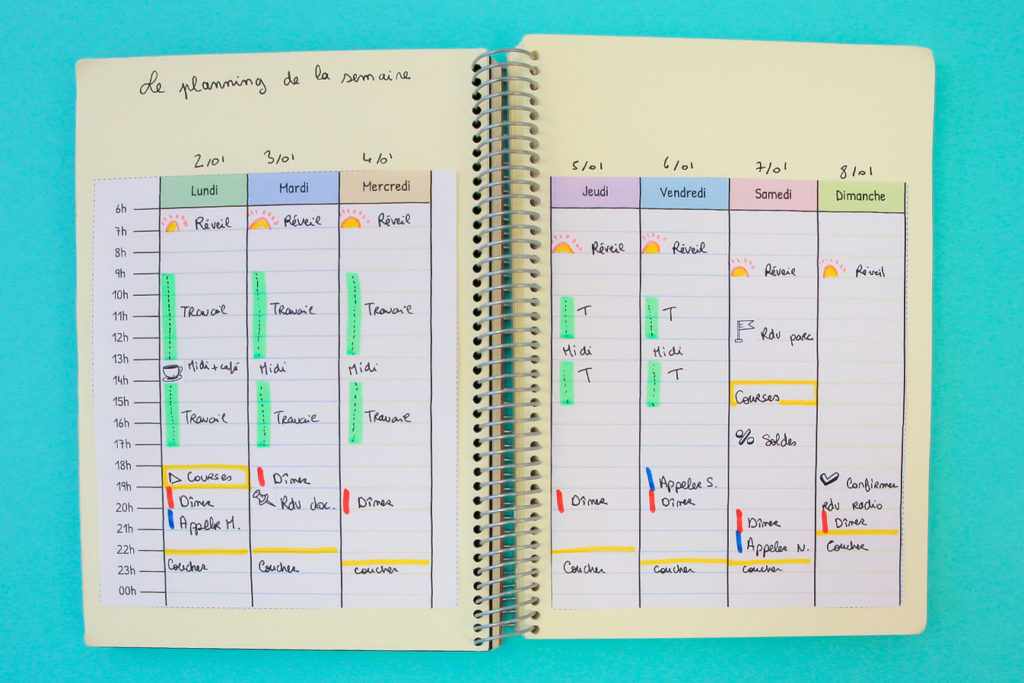 Le planning de la semaine
2/01 3/01 4/01
Lundi Mardi Mercredi
6h
Réveil Réveil Réveil
7h
8h
9h
10h
Travail Travail Travail
11h
12h
13h
Midi + café Midi Midi
14h
15h
Travail Travail Travail
16h
17h
18h
Courses Dîner
19h
Dîner Rdv doc. Dîner
20h
Appeler M.
21h
22h
Coucher Coucher Coucher
23h
00h
5/01 6/01 7/01 8/01
Jeudi Vendredi Samedi Dimanche
Réveil Réveil
Réveil Réveil
T T
Rdv parc
Midi Midi
T T
Courses
% Soldes
Appeler S. Confirmer
Dîner Dîner Rdv radio
Dîner Dîner
Appeler N. Coucher
Coucher Coucher Coucher